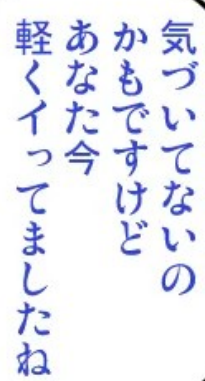 気づいてないの
かもですけど
あなた今
軽くイってましたね